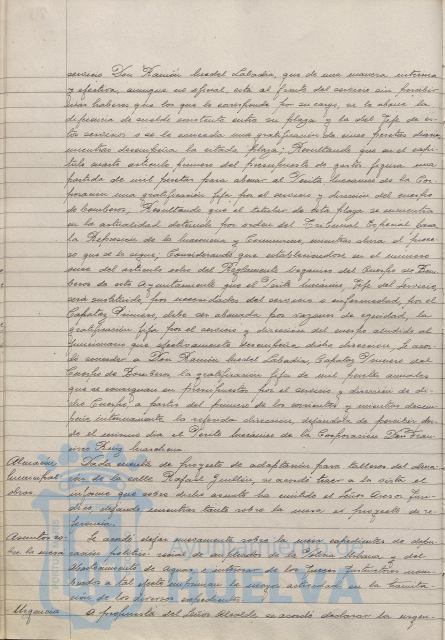 servicio Don Ramón Mudel Labadía, que de una manera interina
y efectiva, aunque no oficial, está al frente del servicio sin percibir
más haberes que los que le corresponde por su cargo, se le abone la
diferencia de sueldo existente entre su plaza y la del Jefe de es-
tos servicios o se le conceda una gratificación de pesetas diarias
mientras desempeña la citada plaza; Resultando que en el capí-
tulo artículo primero del presupuesto de gastos figura una
partida de mil pesetas para abonar al Perito Mecánico de la Cor-
poración una gratificación fija por el servicio y dirección del cuerpo
de bomberos; Resultando que el titular de esta plaza se encuentra
en la actualidad detenido por orden del Tribunal Especial para
la Represión de la Masonería y Comunismo, mientras dura el proce-
so que se le sigue; Considerando que estableciéndose en el número
once del artículo ocho del Reglamento Orgánico del Cuerpo de Bom-
beros de este Ayuntamiento que el Perito Mecánico, Jefe del Servicio,
será sustituido por necesidades del servicio o enfermedad, por el
Capataz Primero, debe ser abonada por razones de equidad, la
gratificación fija por el servicio y dirección del cuerpo aludido al
funcionario que efectivamente desempeña dicha dirección, se acor-
dó conceder a Don Ramón Mudel Labadía, Capataz Primero del
Cuerpo de Bomberos la gratificación fija de mil pesetas anuales
que se consignan en presupuestos por el servicio y dirección de di-
cho Cuerpo, a partir del primero de los corrientes y mientras desem-
peña interinamente la referida dirección, dejándola de percibir des-
de el mismo día el Perito Mecánico de la Corporación Don Fran-
cisco Ruiz Marchena
Almacén Dada cuenta de proyecto de adaptación para talleres del alma-
municipal cén de la calle Rafael Guillén, se acordó traer a la vista el
obras. informe que sobre dicho asunto ha emitido el Señor Asesor Jurí-
dico, dejando mientras tanto sobre la mesa el proyecto de re-
ferencia.
Asuntos so- Se acordó dejar nuevamente sobre la mesa expedientes de depu-
bre la mesa ración político social de empleados de Policía Urbana y del
Abastecimiento de Aguas, e interesar de los Jueces Instructores nom-
brados a tal efecto impriman la mayor actividad en la tramita-
ción de los diversos expedientes.
Urgencia A propuesta del Señor Alcalde se acordó declarar la urgen-